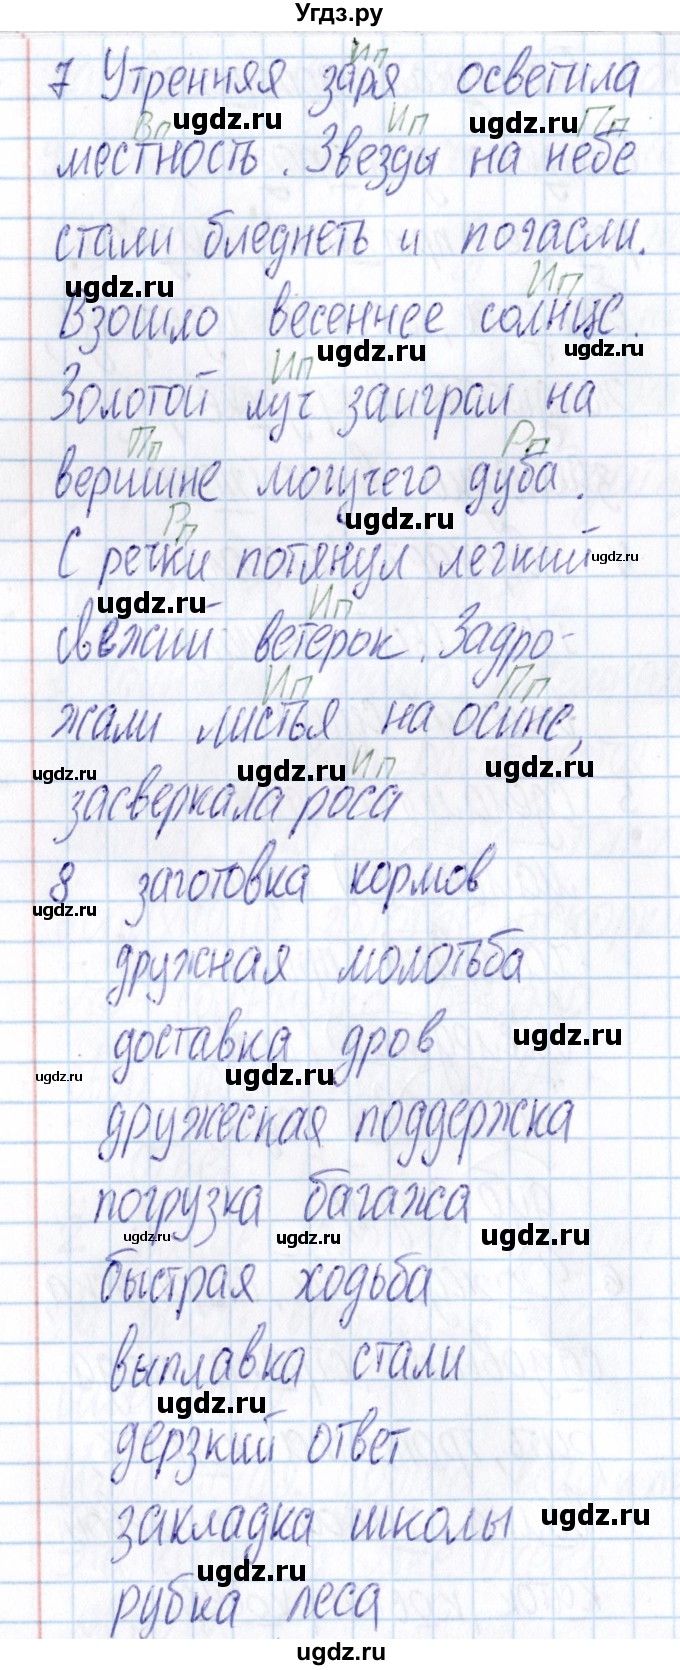 Угдз.ру
Ип
7 Утренняя заря осветила
ugdz.ru ugdz.ru
Вп Ип Пп
местность. Звезды на небе
стали бледнеть и погасли.
ugdz.ru Ип
Взошло весеннее солнце.
ugdz.ru ugdz.ru
Ип
Золотой луч заиграл на
Пп Рп
вершине могучего дуба.
Рп ugdz.ru
С речки потянул легкий
ugdz.ru
ugdz.ru Ип
свежий ветерок. Задро-
Ип Пп
жали листья на осине,
ugdz.ru ugdz.ru Ип ugdz.ru
засверкала роса
8 заготовка кормов
ugdz.ru
дружная молотьба
доставка дров ugdz.ru
ugdz.ru ugdz.ru
дружеская поддержка
погрузка багажа
ugdz.ru ugdz.ru ugdz.ru
быстрая ходьба
выплавка стали
ugdz.ru
дерзкий ответ
закладка школы ugdz.ru
ugdz.ru
рубка леса
ugdz.ru